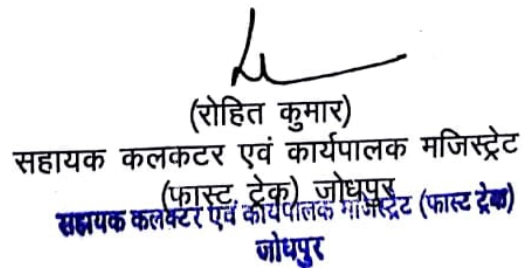 (रोहित कुमार)
सहायक कलकटर एवं कार्यपालक मजिस्ट्रेट
(फास्ट ट्रेक) जोधपुर
सहायक कलक्टर एवं कार्यपालक मजिस्ट्रेट (फास्ट ट्रेक)
जोधपुर